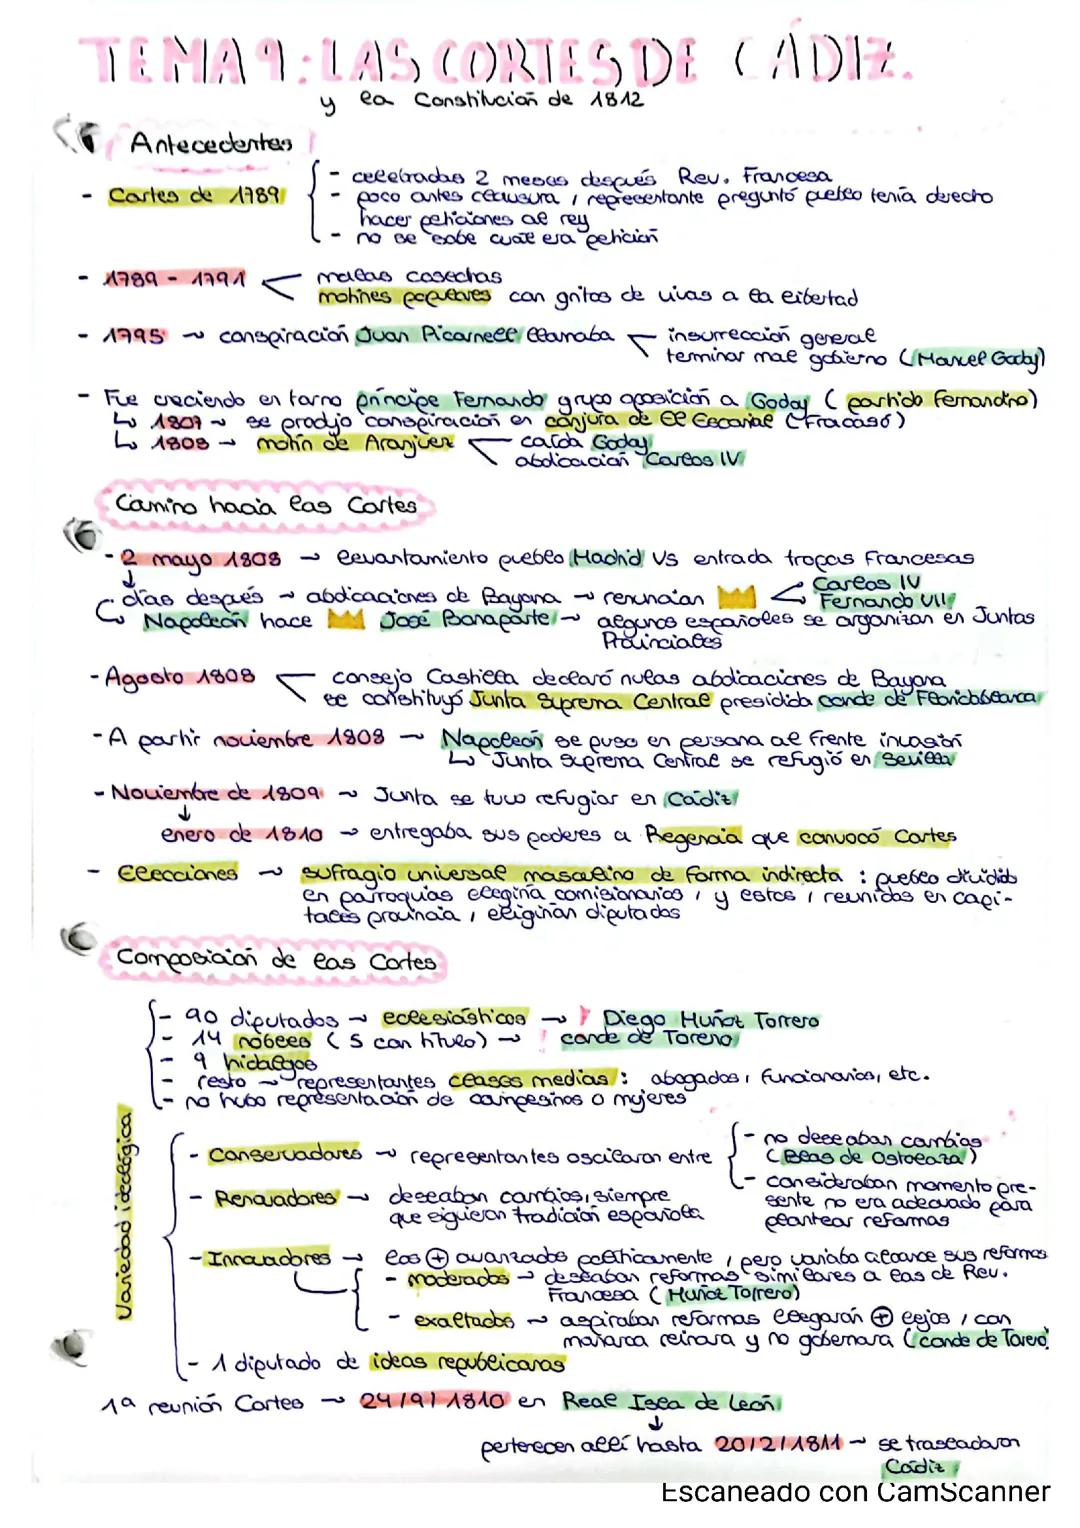 TEMA 9: LAS CORTES DE CÁDIZ.
y la Constitución de 1812
Antecedentes
- Cortes de 1789
- celebradas 2 meses después Rev. Francesa
- poco antes clausura, representante preguntó pueblo tenía derecho
hacer peticiones al rey
- no se sabe cual era petición
- 1789 - 1791
malas cosechas
motines populares con gritos de vivas a la libertad
- 1795 → conspiración Juan Picarnell llamaba
insurrección general
terminar mal gobierno (Manuel Godoy)
- Fue creciendo en torno príncipe Fernando grupo oposición a Godoy (partido fernandino)
↳ 1807 → se produjo conspiración en conjura de El Escorial (Fracasó)
↳ 1808 → motín de Aranjuez
caída Godoy
abdicación Carlos IV
Camino hacia las Cortes
- 2 mayo 1808 → levantamiento pueblo Madrid vs entrada tropas Francesas
↓
días después → abdicaciones de Bayona → renuncian 👑
Carlos IV
Fernando VII
↳ Napoleón hace 👑 José Bonaparte → algunos españoles se organizan en Juntas
Provinciales
- Agosto 1808
consejo Castilla declaró nulas abdicaciones de Bayona
se constituyó Junta Suprema Central presidida conde de Floridablanca
- A partir noviembre 1808 → Napoleón se puso en persona al frente invasión
↳ Junta Suprema Central se refugió en Sevilla
- Noviembre de 1809 → Junta se tuvo refugiar en Cádiz
↓
enero de 1810 → entregaba sus poderes a Regencia que convocó Cortes
- Elecciones → sufragio universal masculino de forma indirecta : pueblo dividido
en parroquias elegiría comisionarios, y estos, reunidos en capi-
tales provincia, eligirían diputados
Composición de las Cortes
- 90 diputados → eclesiásticos → ! Diego Muñoz Torrero
- 14 nobles (5 con título) → ! conde de Toreno
- 9 hidalgos
- resto → representantes clases medias : abogados, funcionarios, etc.
- no hubo representación de campesinos o mujeres
Variedad ideológica
- Conservadores → representantes oscilaron entre
- no deseaban cambios
(Blas de Ostolaza)
- consideraban momento pre-
sente no era adecuado para
plantear reformas
- Renovadores → deseaban cambios, siempre
que siguieran tradición española
- Innovadores → los ⊕ avanzados políticamente, pero variaba alcance sus reformas
- moderados → deseaban reformas similares a las de Rev.
Francesa (Muñoz Torrero)
- exaltados → aspiraban reformas llegaran ⊕ lejos, con
monarca reinara y no gobernara (conde de Toreno)
- 1 diputado de ideas republicanas
1ª reunión Cortes → 24/9/1810 en Real Isla de León
↓
pertenecen allí hasta 20/2/1811 → se trasladaron
Cádiz
Escaneado con CamScanner